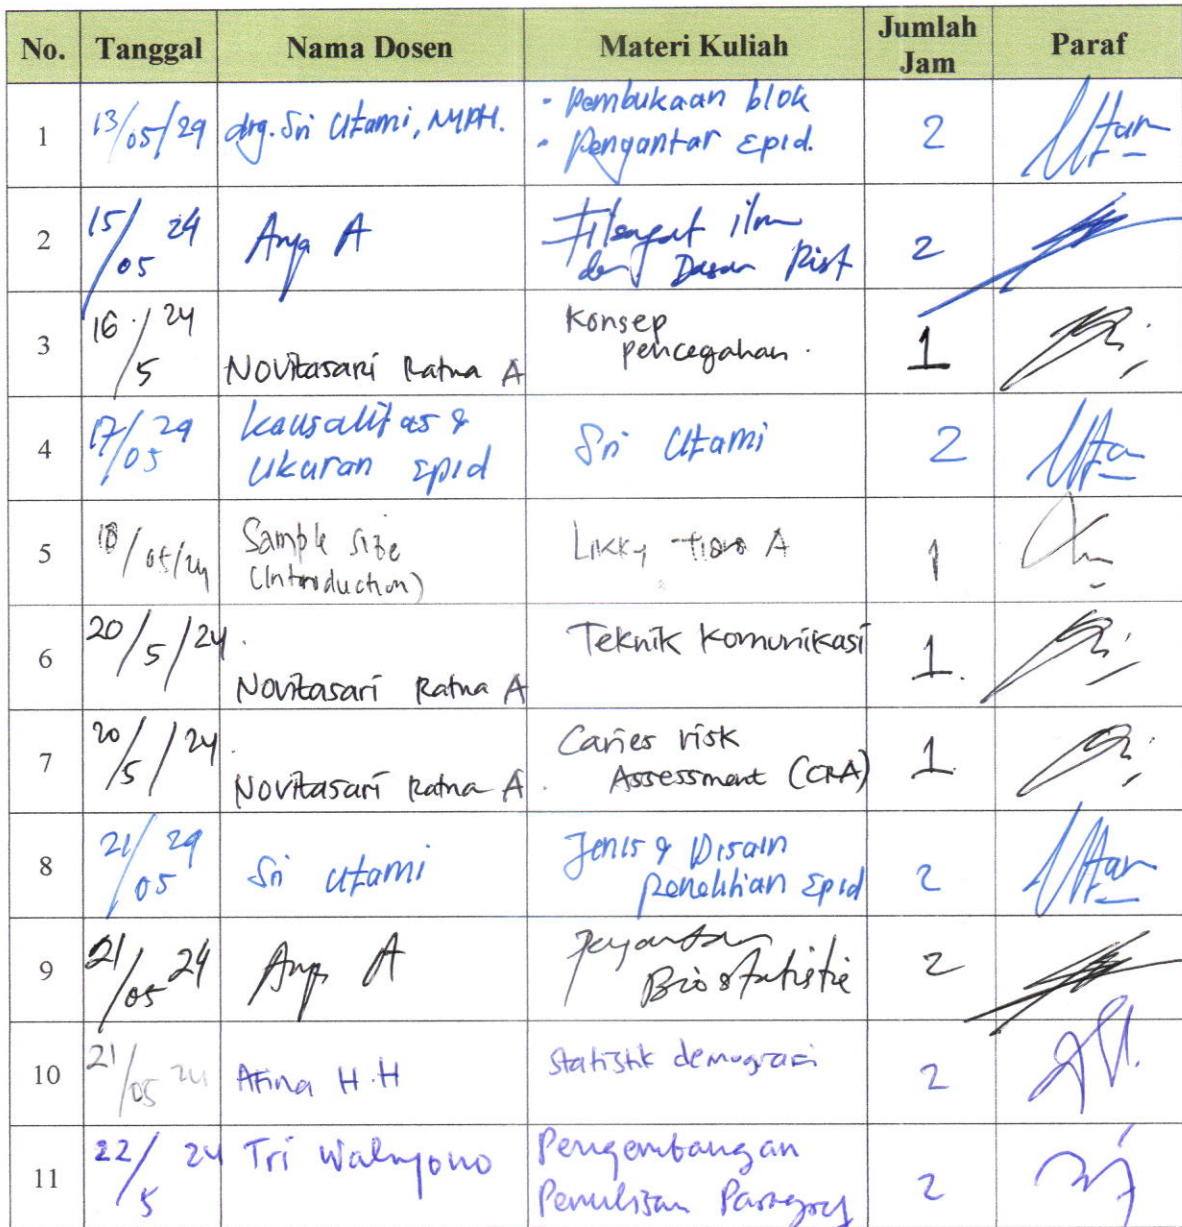 No. Tanggal Nama Dosen Materi Kuliah Jumlah Jam Paraf
1 13/05/24 drg. Sri Utami, MPH. - Pembukaan blok 2
- Pengantar Epid.
2 15/05 24 Arya A Filsafat ilmu 2
dan Dasar Rist
3 16/5 24 Novitasari Ratna A Konsep 1
pencegahan.
4 17/05 24 Kausalitas & Sri Utami 2
Ukuran Epid
5 18/05/24 Sample Size Likky A 1
(Introduction)
6 20/5/24. Novitasari Ratna A Teknik Komunikasi 1.
7 20/5/24. Novitasari Ratna A. Caries risk 1.
Assessment (CRA)
8 21/05 24 Sri Utami Jenis & Disain 2
penelitian Epid
9 21/05 24 Arya A 2
Biostatistic
10 21/05 24 Atina H.H statistik demografi 2
11 22/5 24 Tri Wahyono Pengembangan 2
Penulisan Paragraf